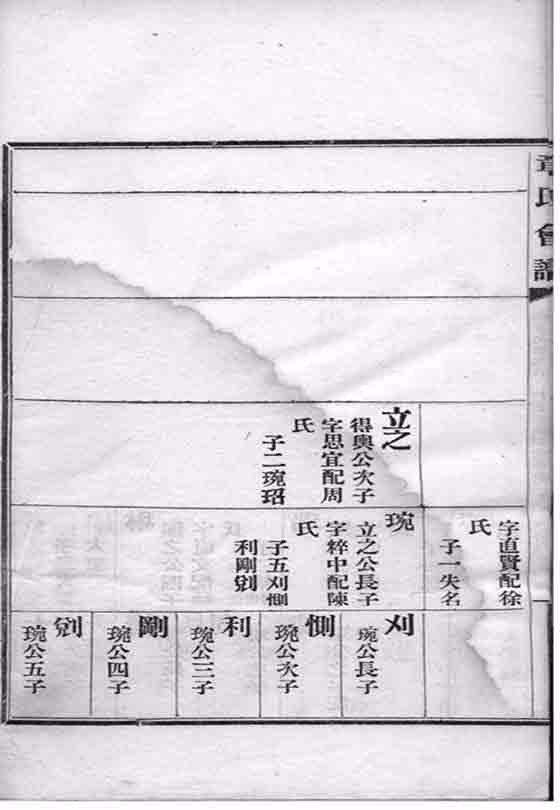 章氏會譜
立之
得輿公次子
字思宜配周
氏
子二琬玿
字直賢配徐
氏
子一失名
琬
立之公長子
字粹中配陳
氏
子五刈惻
利剛
刈
琬公長子
惻
琬公次子
利
琬公三子
剛
琬公四子
琬公五子